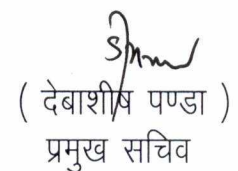 ( देबाशीष पण्डा )
प्रमुख सचिव